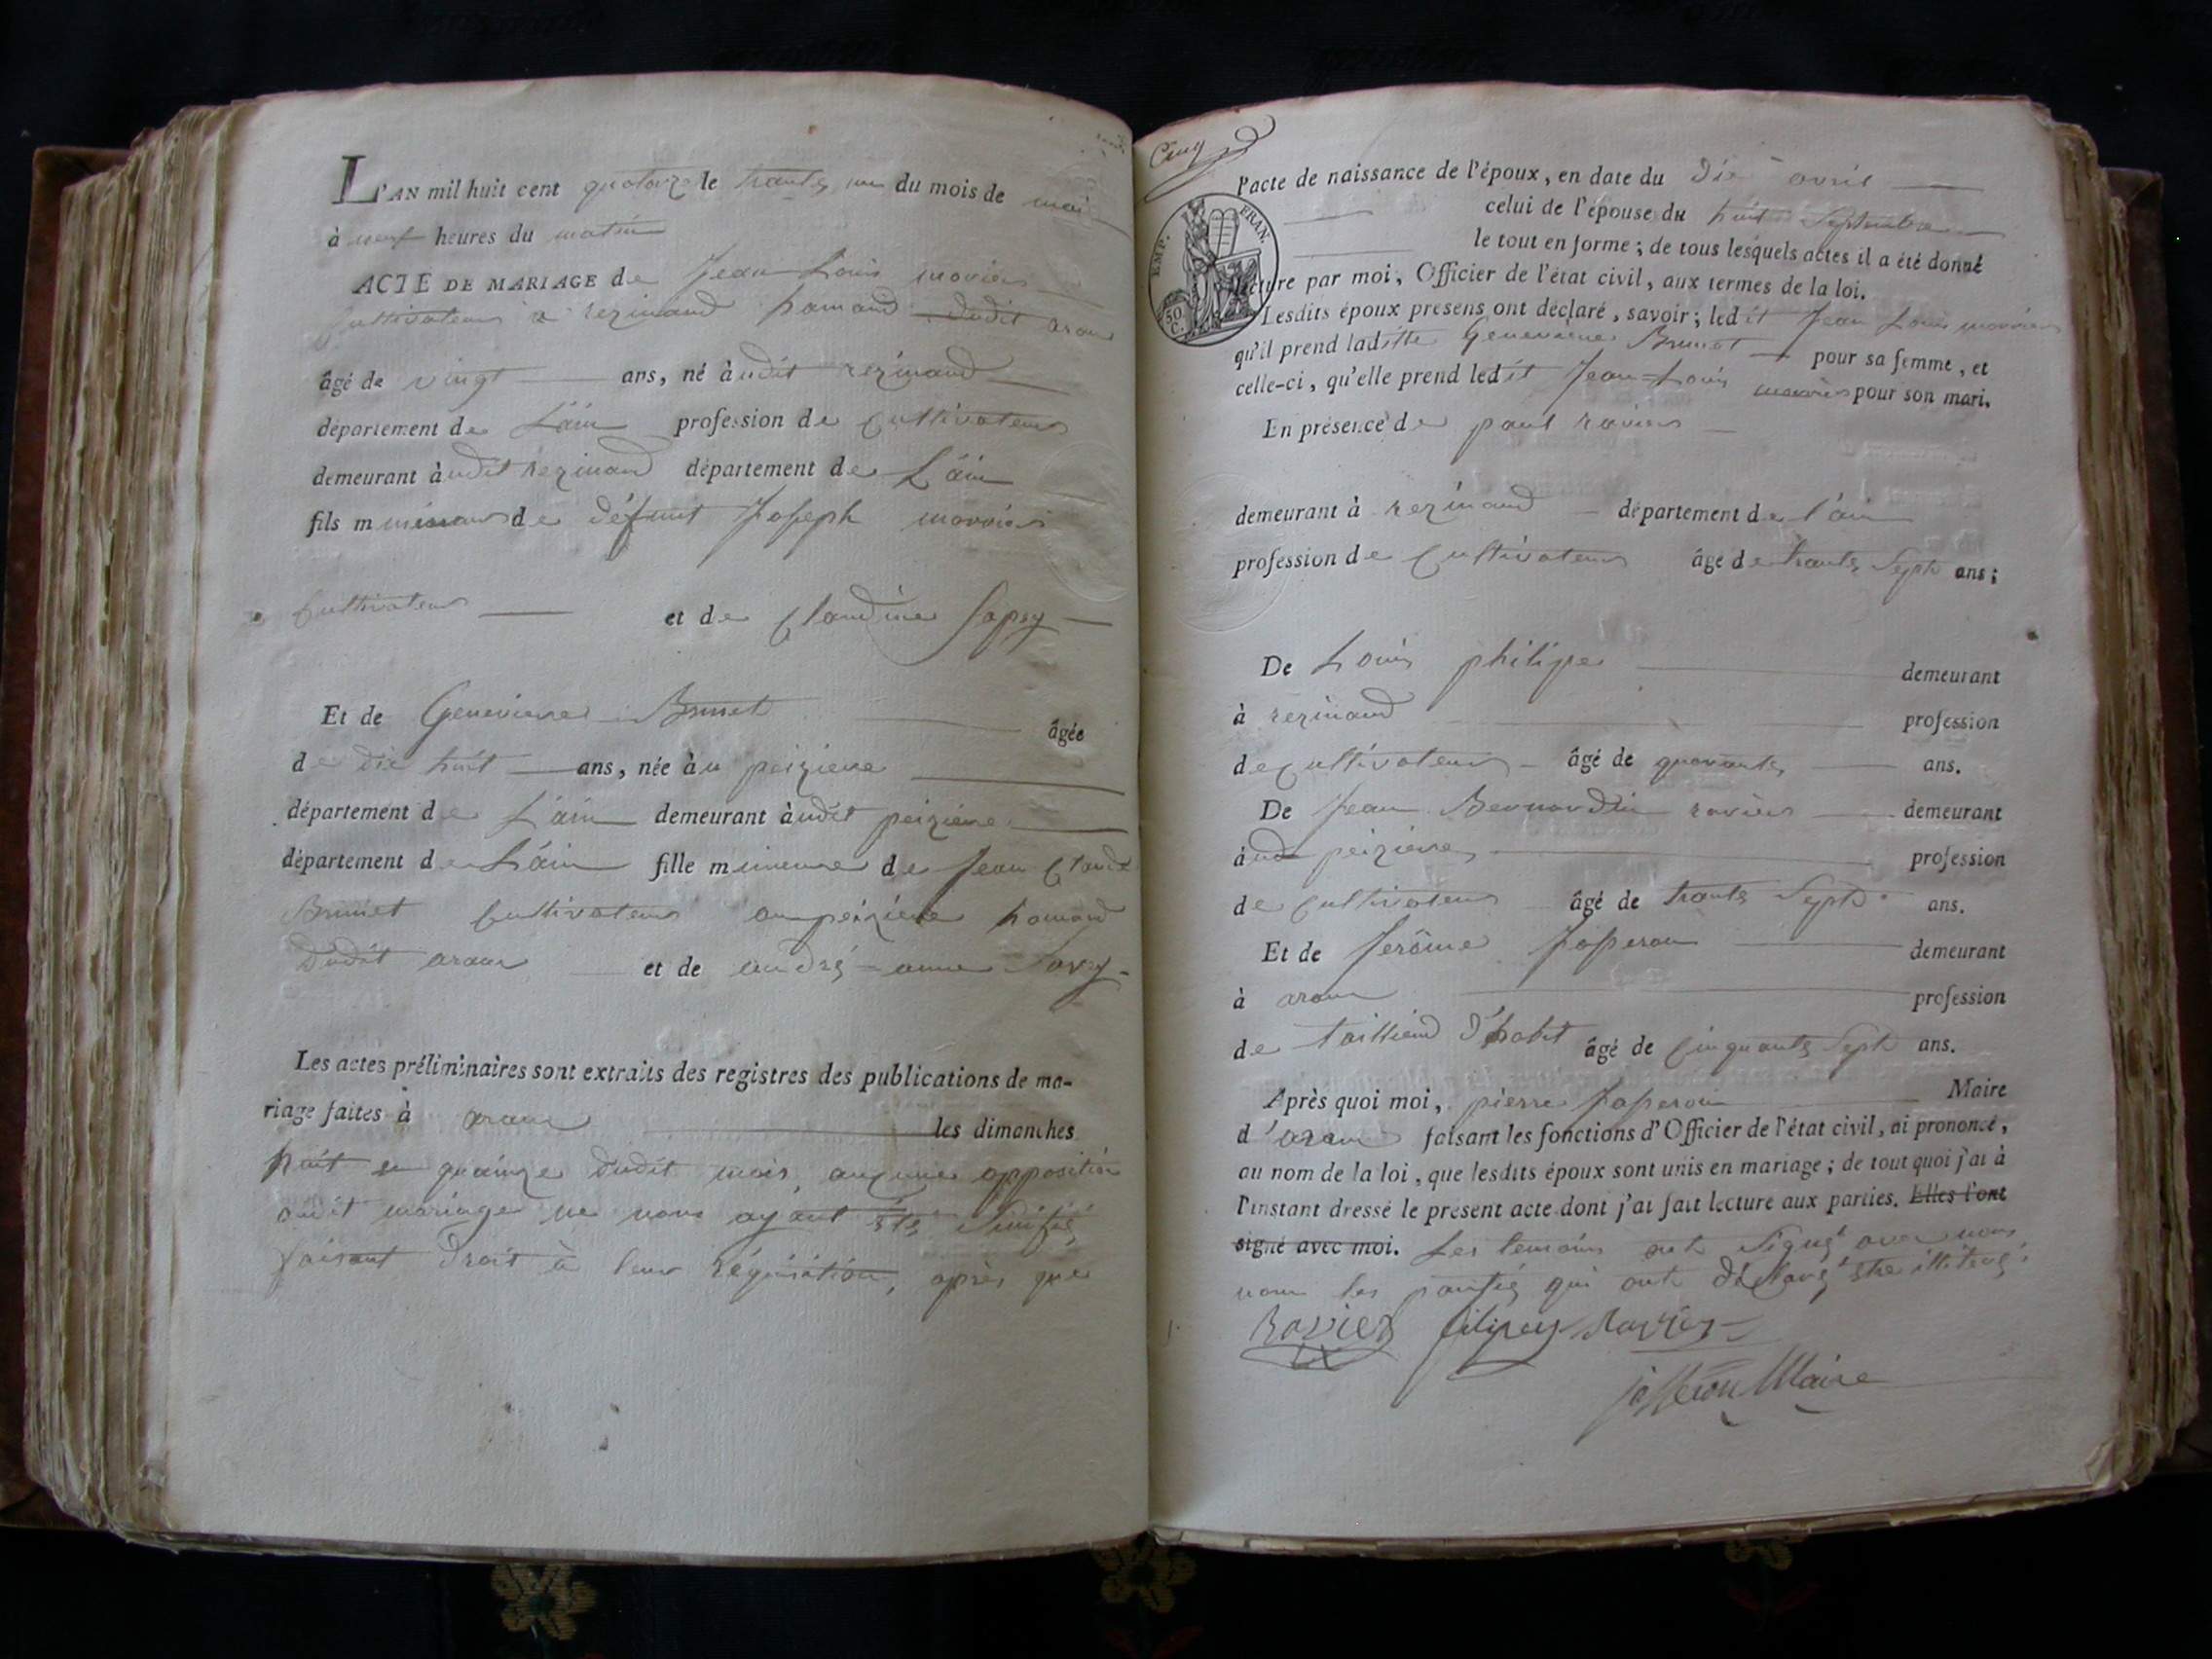 L'AN mil huit cent quatorze le trante un du mois de mai
à neuf heures du matin
ACTE DE MARIAGE de Jean Louis
cultivateur à rezinand hamaud dudit aran
âgé de vingt ans, né àudit rezinand
département de L'ain profession de cultivateur
demeurant àudit rezinand département de L'ain
fils mineur de défunt Joseph
cultivateur et de Claudine
Et de Genevieve Brunet âgée
de dix huit ans, née àu peizieres
département de L'ain demeurant àudit peizieres
département de L'ain fille mineure de Jean Claude
Brunet cultivateur au peizieres hamaud
dudit aran et de andré-anne Savey
Les actes préliminaires sont extraits des registres des publications de ma-
riage faites à aran les dimanches
huit et quainze dudit mois, auqune opposition
audit mariage ne nous ayant été
faisant droit à leur réquisition, après que
Cinq
l'acte de naissance de l'époux, en date du dix avril
celui de l'épouse du huit Septembre
le tout en forme ; de tous lesquels actes il a été donné
EMP. FRAN.
50 C.
lecture par moi, Officier de l'état civil, aux termes de la loi.
Lesdits époux présens ont déclaré, savoir ; ledit Jean Louis
qu'il prend laditte Genevieve Brunet pour sa femme, et
celle-ci, qu'elle prend ledit Jean-Louis pour son mari.
En présence de paul ravier
demeurant à rezinand département de l'ain
profession de cultivateur âgé de trante Sept ans ;
De Louis philipe demeurant
à rezinand profession
de cultivateur âgé de quarante ans.
De Jean Bernardin ravier demeurant
àud peizieres profession
de cultivateur âgé de trante Sept ans.
Et de Jerôme Josseron demeurant
à aran profession
de taillieud d'habit âgé de cinquante Sept ans.
Après quoi moi, pierre Josseron Maire
d'aran faisant les fonctions d'Officier de l'état civil, ai prononcé,
au nom de la loi, que lesdits époux sont unis en mariage ; de tout quoi j'ai à
l'instant dressé le présent acte dont j'ai fait lecture aux parties. Elles l'ont
signé avec moi. Les temoins ont Signé avec nous,
non les parties qui ont déclaré être illiteré.
Ravier filipey Ravier
josseron Maire